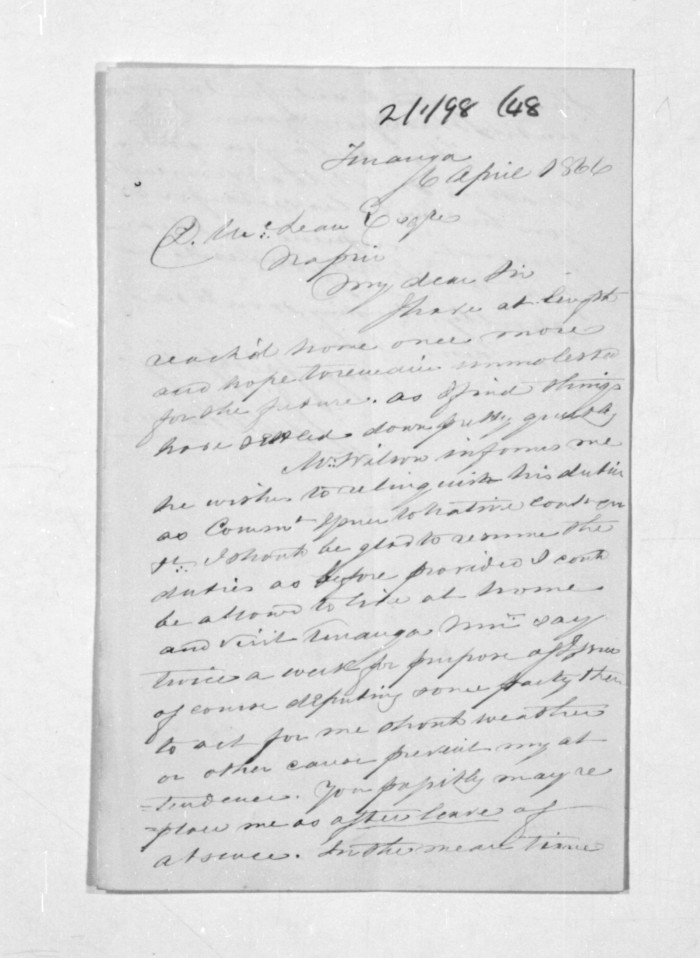 2/1/98 (48
Turanga
6 April 1866
D. McLean Esqre
Napier
My dear Sir
I have at length
reach'd home once more
and hope to remain unmolested
for the future. as I find things
have settled down pretty quietly
Mr. Wilson informs me
he wishes to relinquish his duties
as Commt Issuer to Native Contingent
&c. I should be glad to resume the
duties as before provided I could
be allowed to live at home
and visit Turanga say
twice a week for purpose of Issue
of course deputing some party there
to act for me should weather
or other cause prevent my at
=tendance. You possibly may re
=place me as after leave of
absence. In the mean time